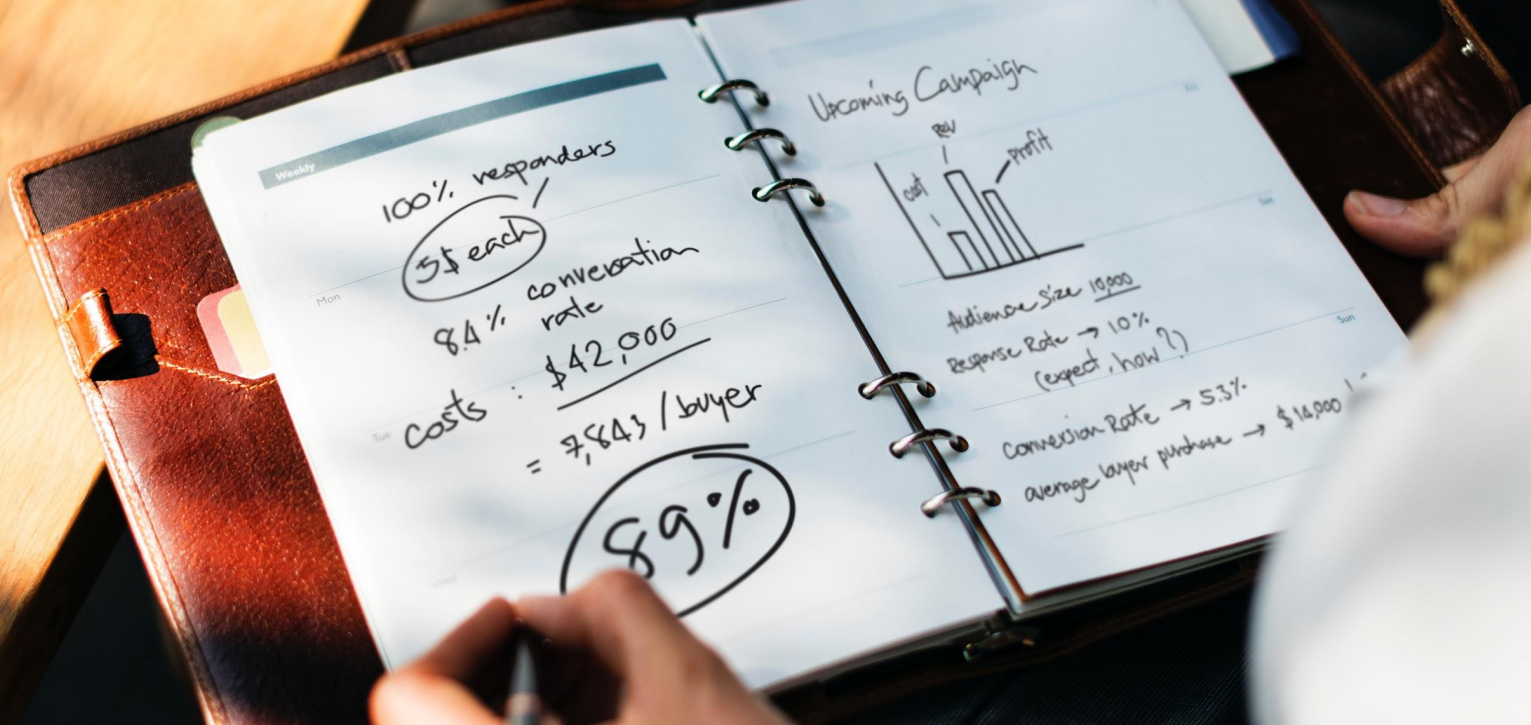 Weekly
100% responders
5$ each
Mon
8.4% conversation
rate
Tue
costs : $42,000
= 7,843 / buyer
89%
Wed
Upcoming Campaign
Fri
Rev
profit
cost
Sat
Audience Size 10,000
Response Rate → 1.0%
(expect, how?)
Sun
Conversion Rate → 5.3%
average buyer purchase → $14,000